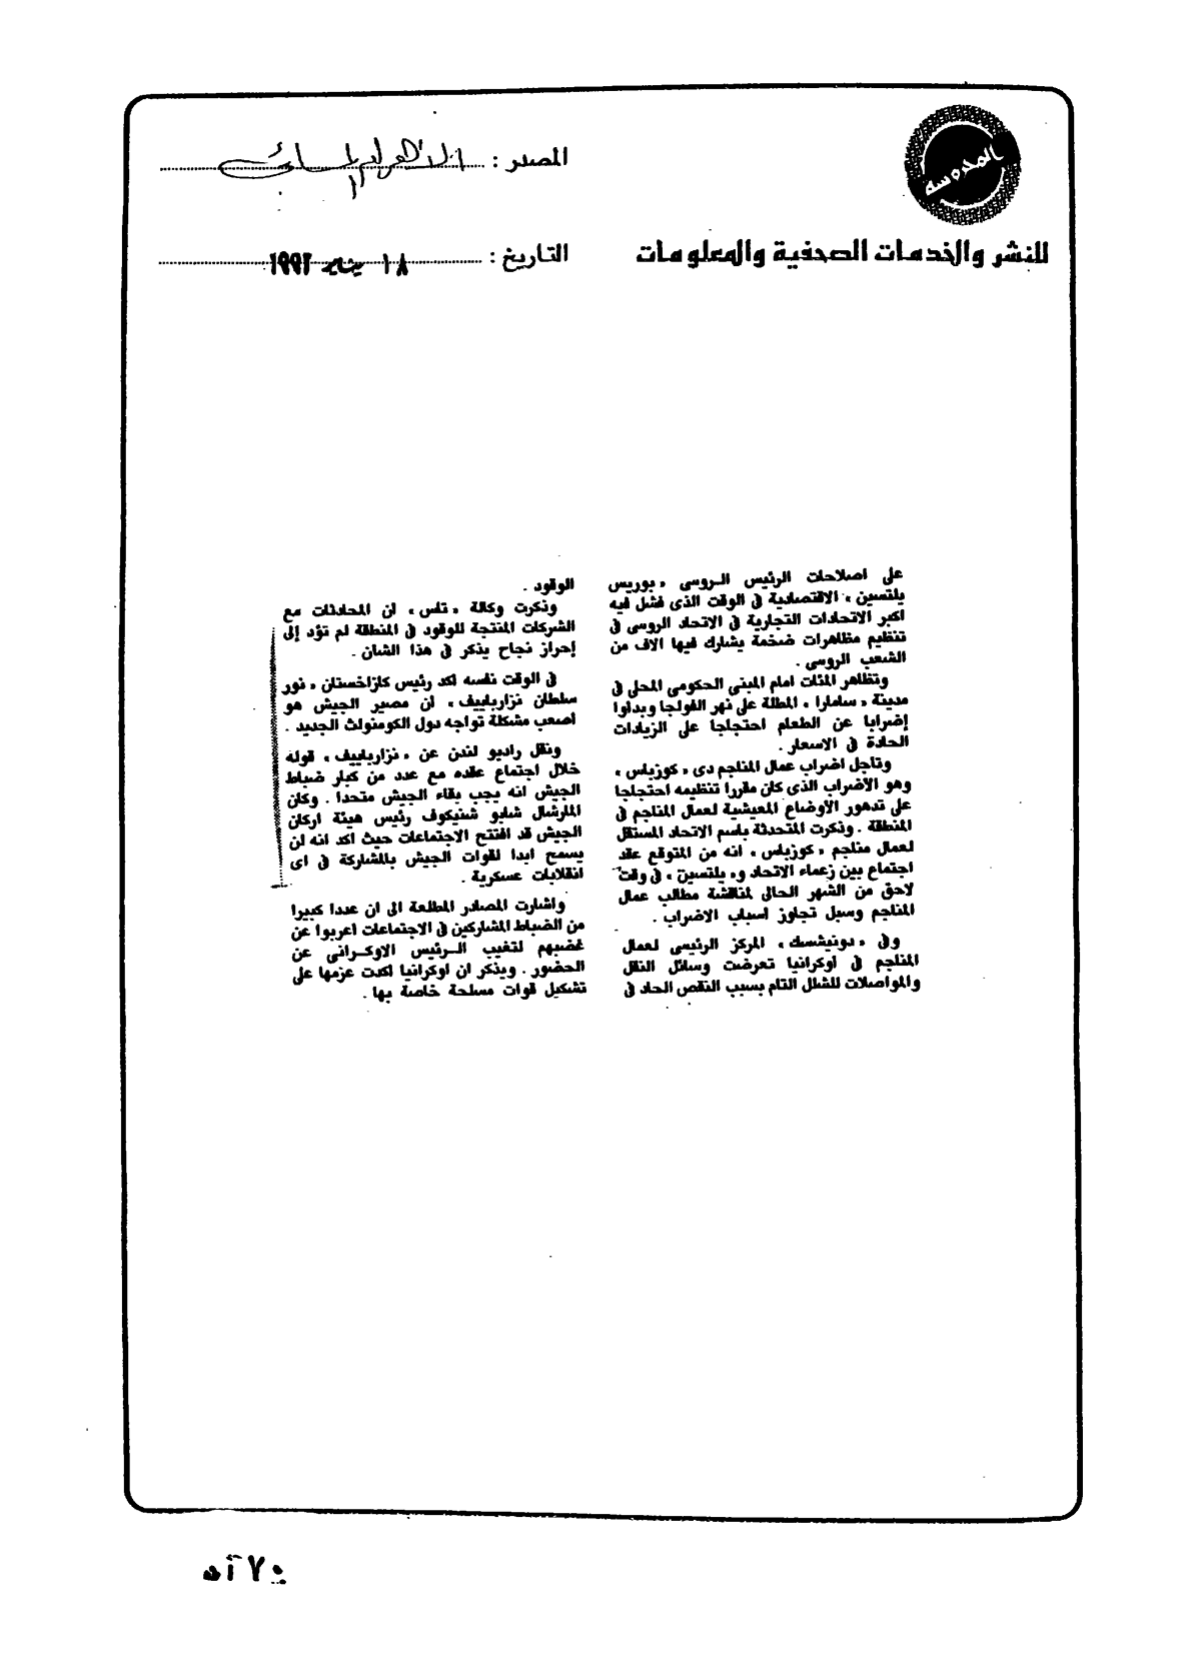 المحروسة
للنشر والخدمات الصحفية والمعلومات
المصدر :
التاريخ : ١٨ يناير ١٩٩٢
على اصلاحات الرئيس الروسى « بوريس
يلتسين » الاقتصادية فى الوقت الذى فشل فيه
اكبر الاتحادات التجارية فى الاتحاد الروسى فى
تنظيم مظاهرات ضخمة يشارك فيها الاف من
الشعب الروسى .
وتظاهر المئات امام المبنى الحكومى المحلى فى
مدينة « سامارا » المطلة على نهر الفولجا وبداوا
إضرابا عن الطعام احتجاجا على الزيادات
الحادة فى الاسعار .
وتاجل اضراب عمال المناجم دى « كوزباس »
وهو الاضراب الذى كان مقررا تنظيمه احتجاجا
على تدهور الأوضاع المعيشية لعمال المناجم فى
المنطقة . وذكرت المتحدثة باسم الاتحاد المستقل
لعمال مناجم « كوزباس » انه من المتوقع عقد
اجتماع بين زعماء الاتحاد و« يلتسين » فى وقت
لاحق من الشهر الحالى لمناقشة مطالب عمال
المناجم وسبل تجاوز اسباب الاضراب .
وفى « دونيتسك » المركز الرئيسى لعمال
المناجم فى اوكرانيا تعرضت وسائل النقل
والمواصلات للشلل التام بسبب النقص الحاد فى
الوقود .
وذكرت وكالة « تاس » ان المحادثات مع
الشركات المنتجة للوقود فى المنطقة لم تؤد إلى
إحراز نجاح يذكر فى هذا الشان .
فى الوقت نفسه اكد رئيس كازاخستان « نور
سلطان نزارباييف » ان مصير الجيش هو
اصعب مشكلة تواجه دول الكومنولث الجديد .
ونقل راديو لندن عن « نزارباييف » قوله
خلال اجتماع عقده مع عدد من كبار ضباط
الجيش انه يجب بقاء الجيش متحدا . وكان
المارشال شابو شنيكوف رئيس هيئة اركان
الجيش قد افتتح الاجتماعات حيث اكد انه لن
يسمح ابدا لقوات الجيش بالمشاركة فى اى
انقلابات عسكرية .
واشارت المصادر المطلعة الى ان عددا كبيرا
من الضباط المشاركين فى الاجتماعات اعربوا عن
غضبهم لتغيب الرئيس الاوكرانى عن
الحضور . ويذكر ان اوكرانيا اكدت عزمها على
تشكيل قوات مسلحة خاصة بها .